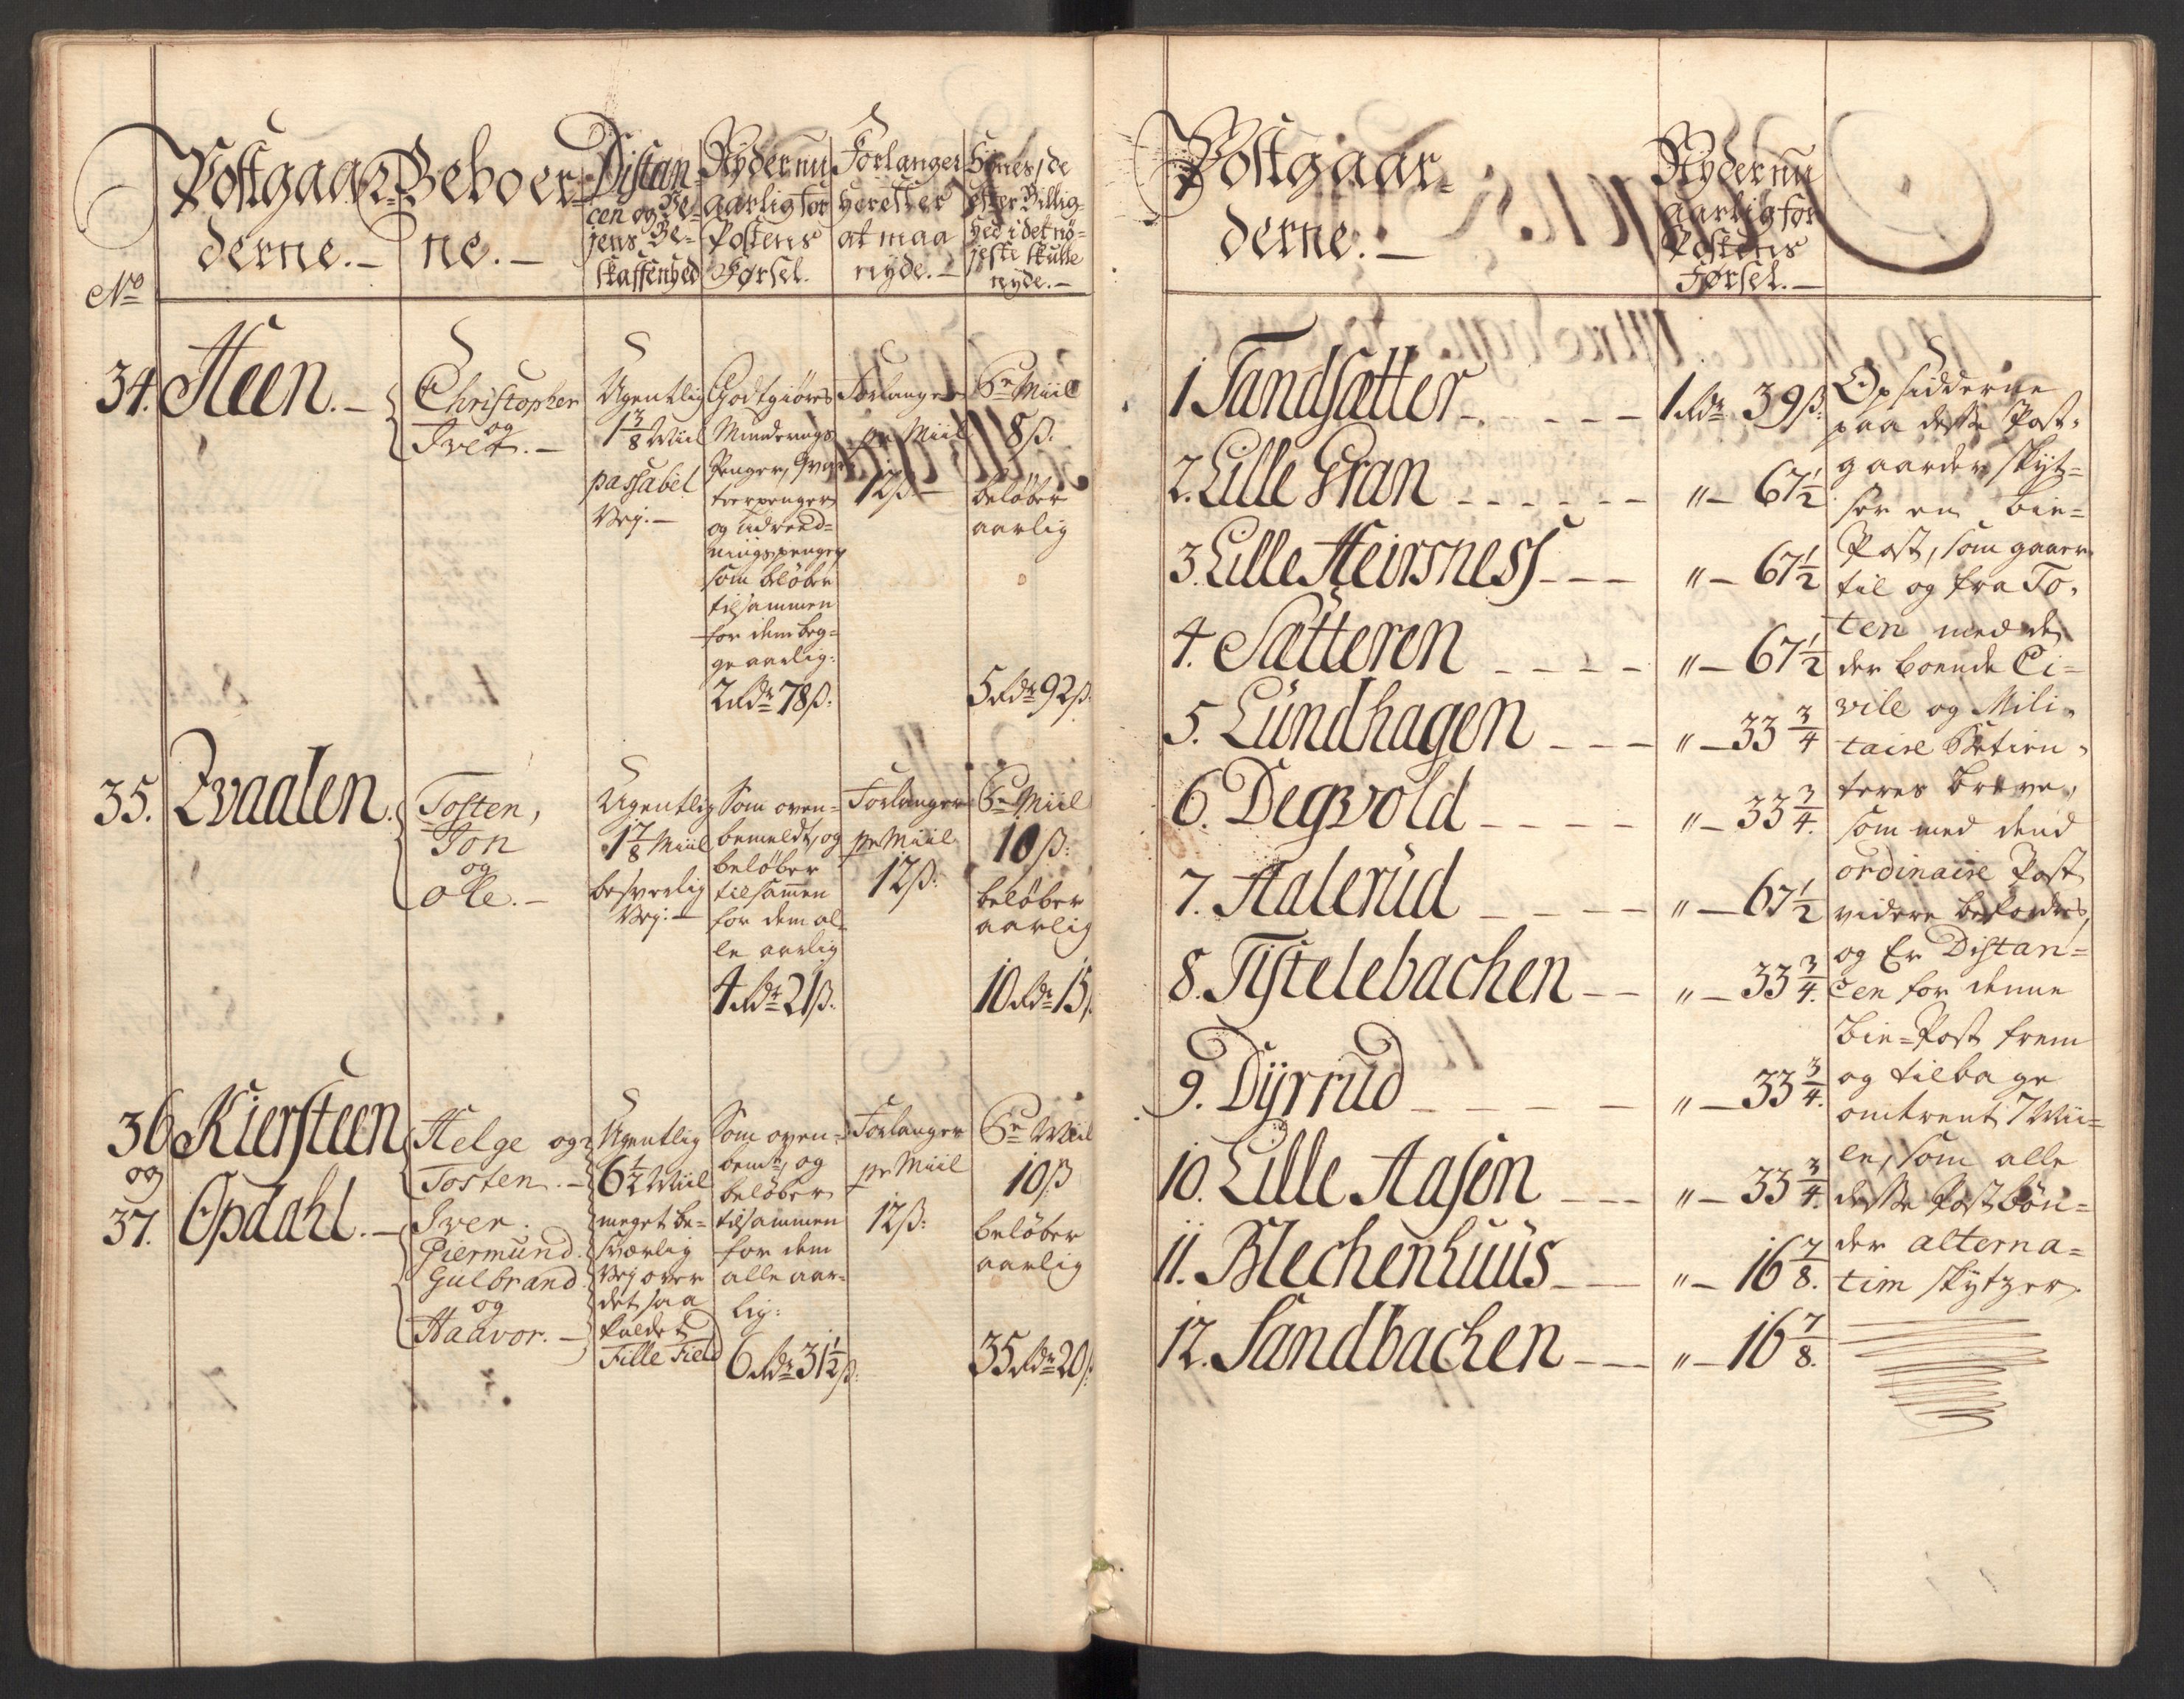 Postgaar-
derne.-
Beboer-
ne.-
Distan-
cen og Ve-
jens Be-
skaffenhed
Nyder nu
aarlig for
Postens
Førsel.
Forlanger
herefter
at maa
nyde.-
Synes, de
efter Billig-
hed i det nø-
jeste skulle
nyde.-
No
34. Steen.-
Christopher
og
Iver.-
Ugentlig
1 3/8 Miil
passabel
Vej.-
Godtgiøres
Munderings
Penger, Qvar-
teerpenger
og Udreed-
ningspenger
som beløber
tilsammen
for dem beg-
ge aarlig:
2 Rdr 78 ß.
Forlanger
pr Miil
12 ß.-
Pr Miil
8 ß.
beløber
aarlig
5 Rdr 92 ß.
35. Qvaalen.
Tosten,
Jon
og
Ole.-
Ugentlig
1 7/8 Miil
besverlig
Vej.-
Som oven-
bemeldt, og
beløber
tilsammen
for dem al-
le aarlig
4 Rdr 21 ß.
Forlanger
pr Miil
12 ß:
Pr Miil
10 ß:
beløber
aarlig
10 Rdr 15
36 Kiersteen
og
37. Opdahl.-
Helge og
Tosten.-
Iver.
Giermund.
Gulbrand.
og
Haavor.-
Ugentlig
6 1/2 Miil
meget be-
sværlig
Vej over
det saa
kaldet
Fille Field
Som oven-
bemt, og
beløber
tilsammen
for dem
alle aar-
lig:
6 Rdr 31 1/2 ß:
Forlanger
pr Miil
12 ß:
Pr Miil
10 ß
beløber
aarlig
35 Rdr 20 ß:
Postgaar-
derne.-
Nyder nu
aarlig for
Postens
Førsel.-
1 Sandsætter - - - - 1 Rdr 39 ß.
2. Lille Gran - - - - - " - 67 1/2
3. Lille Heirsness - - - " - 67 1/2
4. Sætteren - - - - " - 67 1/2
5. Lundhagen - - - " - 33 3/4
6. Degvold - - - - " - 33 3/4.
7. Halerud - - - - " - 67 1/2
8. Tistelebachen - - " - 33 3/4.
9. Dÿrrud - - - - " - 33 3/4.
10. Lille Aasen - - - " - 33 3/4.
11. Blechenhuus - - " - 16 7/8.
12. Sandbachen - - " - 16 7/8.
Opsidderne
paa disse Post-
gaarder skyt-
ser en bie-
Post, som gaaer
til og fra To-
ten med de
der boende Ci-
vile og Mili-
taire Betien-
teres breve,
som med dend
ordinaire Post
videre befordres,
og Er Distan-
cen for denne
bie-Post frem
og tilbage
omtrent 7 Mii-
le, som alle
disse Postbøn-
der alterna-
tim skytzer.